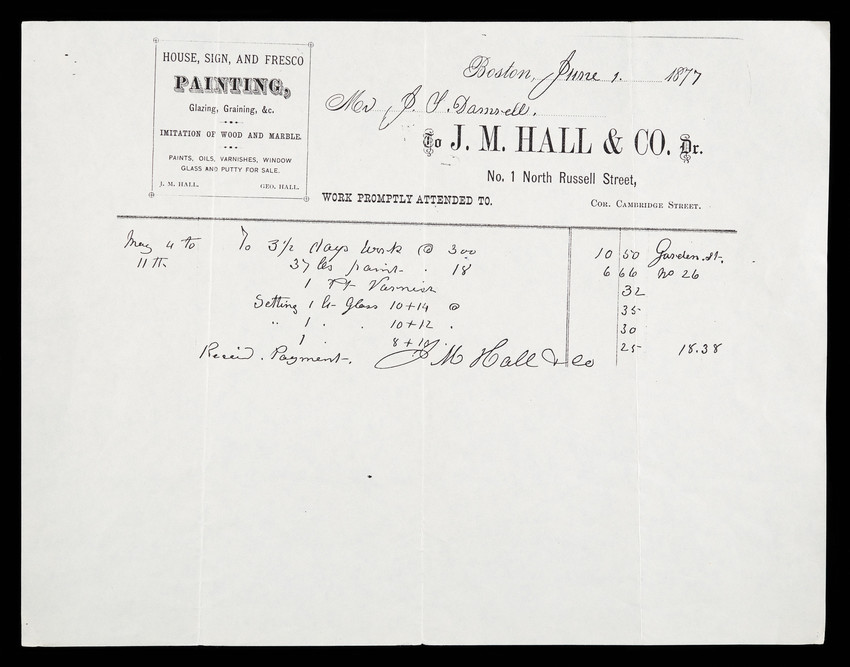 HOUSE, SIGN, AND FRESCO
PAINTING,
Glazing, Graining, &c.
IMITATION OF WOOD AND MARBLE.
PAINTS, OILS, VARNISHES, WINDOW
GLASS AND PUTTY FOR SALE.
J. M. HALL. GEO. HALL.
Boston, June 1. 1877
Mr J. S. Damrell.
To J. M. HALL & CO. Dr.
No. 1 North Russell Street,
WORK PROMPTLY ATTENDED TO. COR. CAMBRIDGE STREET.
May 4 to To 3 1/2 days work @ 300 10 50 Garden St.
11th 37 lbs paint . 18 6 66 No 26
1 Pt Varnish 32
Setting 1 Lt Glass 10+14 @ 35
" 1 . . 10+12 . 30
1 . 8+10 . 25 18.38
Receid. Payment. J M Hall & Co